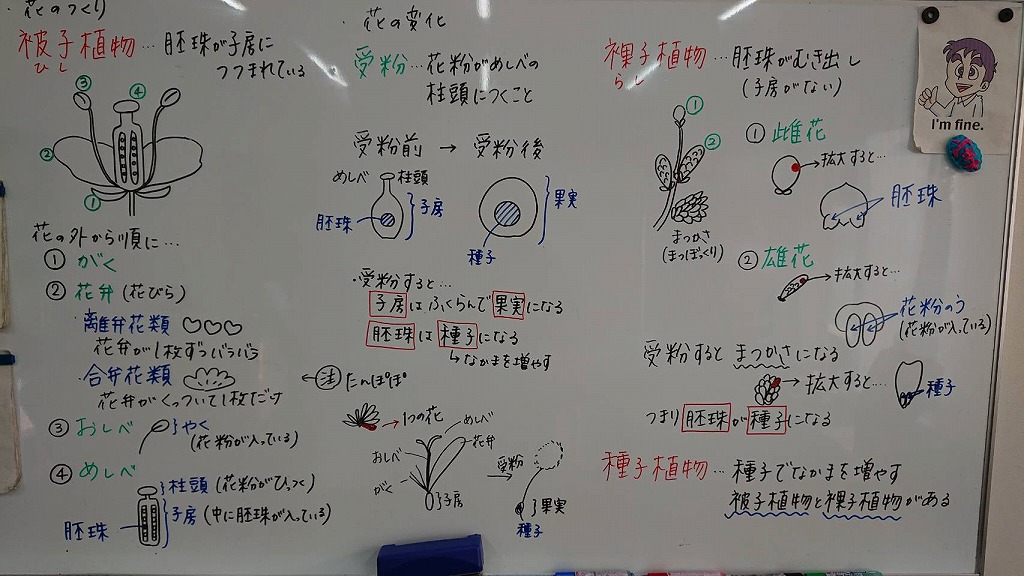 ・花のつくり
被子植物…胚珠が子房に
ひし
つつまれている
③
④
②
①
花の外から順に…
① がく
② 花弁(花びら)
・離弁花類
花弁が1枚ずつバラバラ
・合弁花類
花弁がくっついて1枚だけ
③ おしべ
やく
(花粉が入っている)
④ めしべ
柱頭(花粉がひっつく)
子房(中に胚珠が入っている)
胚珠
・花の変化
受粉…花粉がめしべの
柱頭につくこと
受粉前 → 受粉後
めしべ
柱頭
子房
胚珠
果実
種子
・受粉すると…
子房はふくらんで果実になる
胚珠は種子になる
↳なかまを増やす
←注 たんぽぽ
→1つの花
めしべ
おしべ
花弁
がく
子房
受粉
→
果実
種子
裸子植物…胚珠がむき出し
らし
(子房がない)
①
②
まつかさ
(まつぼっくり)
① 雌花
→拡大すると…
胚珠
② 雄花
→拡大すると…
花粉のう
(花粉が入っている)
受粉すると まつかさになる
→拡大すると…
種子
つまり胚珠が種子になる
種子植物…種子でなかまを増やす
被子植物と裸子植物がある
I'm fine.